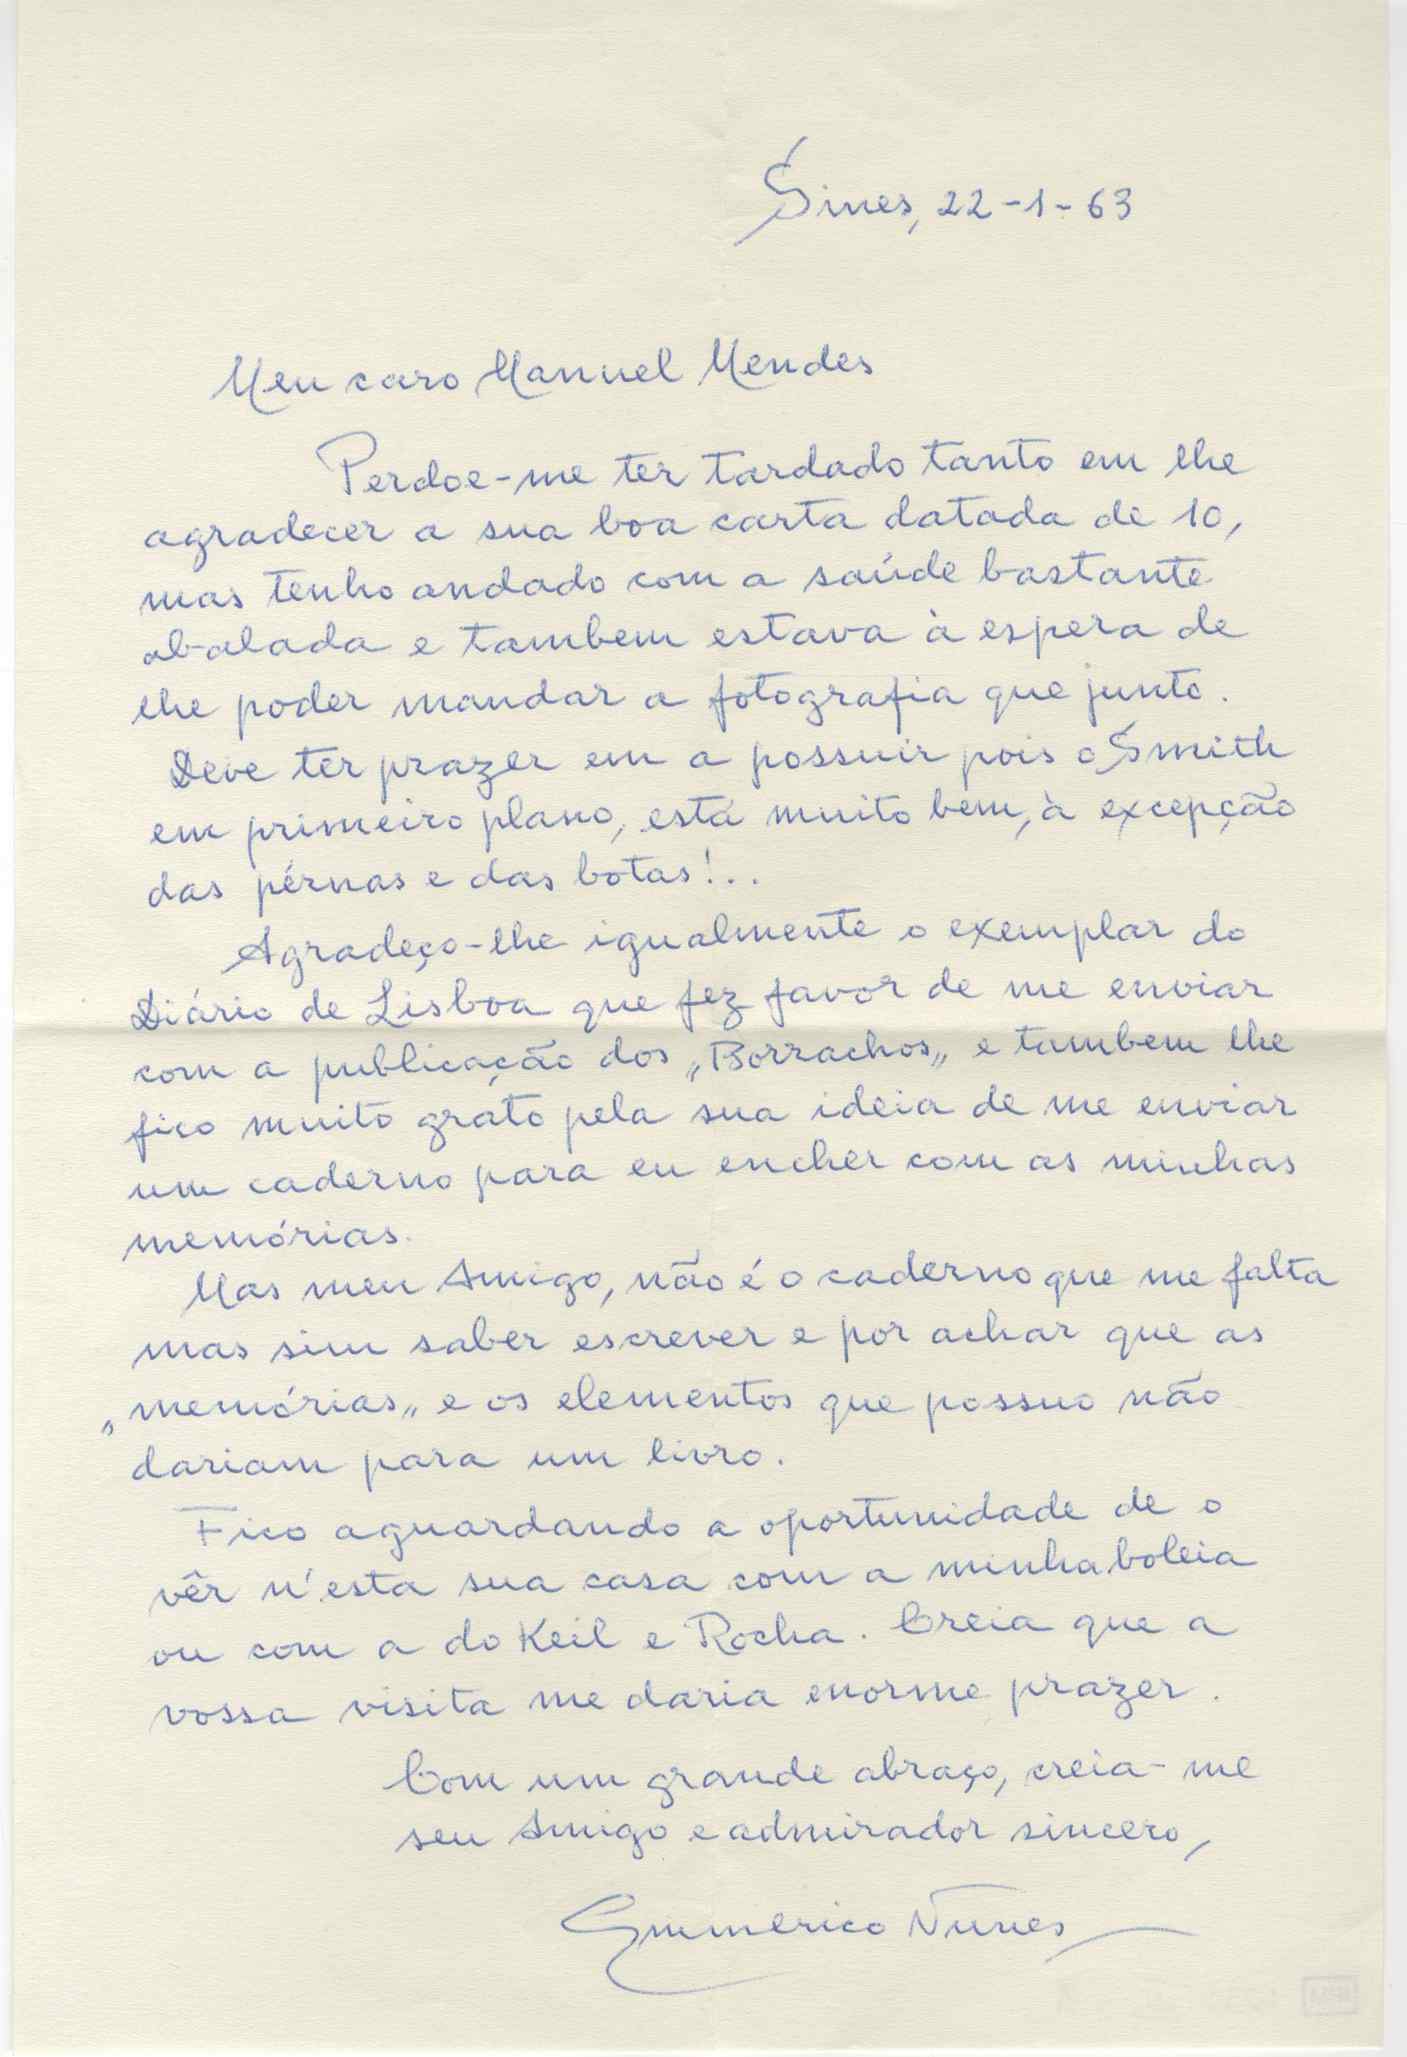 Sines, 22-1-63
Meu caro Manuel Mendes
Perdoe-me ter tardado tanto em lhe
agradecer a sua boa carta datada de 10,
mas tenho andado com a saúde bastante
abalada e tambem estava à espera de
lhe poder mandar a fotografia que junto.
Deve ter prazer em a possuir pois o Smith
em primeiro plano, está muito bem, à excepção
das pérnas e das botas!..
Agradeço-lhe igualmente o exemplar do
Diário de Lisboa que fez favor de me enviar
com a publicação dos „Borrachos„ e tambem lhe
fico muito grato pela sua ideia de me enviar
um caderno para eu encher com as minhas
memórias.
Mas meu Amigo, não é o caderno que me falta
mas sim saber escrever e por achar que as
„memórias„ e os elementos que possuo não
dariam para um livro.
Fico aguardando a oportunidade de o
vêr n'esta sua casa com a minha boleia
ou com a do Keil e Rocha. Creia que a
vossa visita me daria enorme prazer.
Com um grande abraço, creia-me
seu Amigo e admirador sincero,
Emmerico Nunes